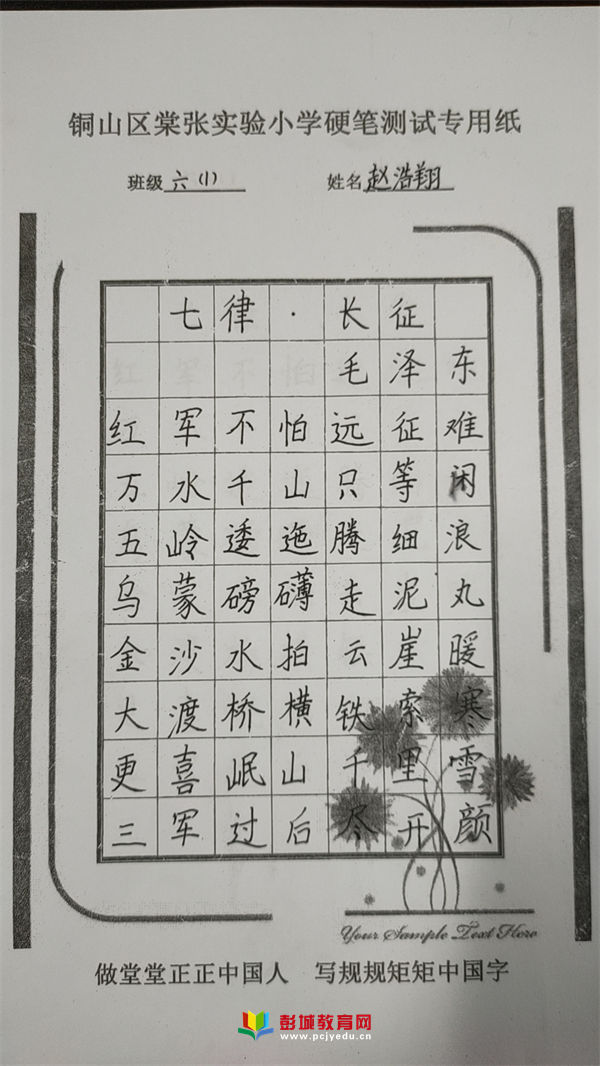 铜山区棠张实验小学硬笔测试专用纸
班级 六(1) 姓名 赵浩翔
七律·长征
毛泽东
红军不怕远征难
万水千山只等闲
五岭逶迤腾细浪
乌蒙磅礴走泥丸
金沙水拍云崖暖
大渡桥横铁索寒
更喜岷山千里雪
三军过后尽开颜
Your Sample Text Here
做堂堂正正中国人 写规规矩矩中国字
彭城教育网
www.pcjyedu.cn